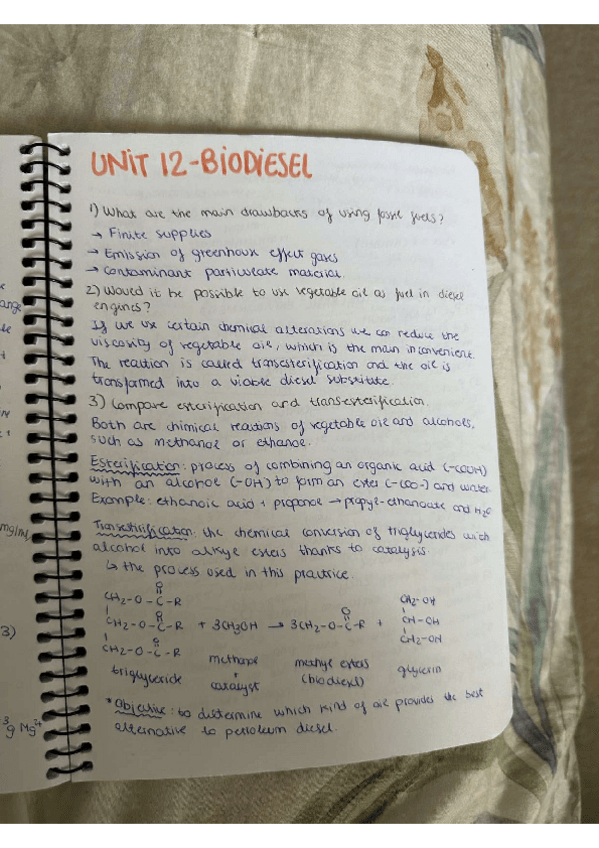 UNIT 12-BIODIESEL
1) What are the main drawbacks of using fossil fuels?
→ Finite supplies
→ Emission of greenhouse effect gases
→ Contaminant particulate material.
2) Would it be possible to use vegetable oil as fuel in diesel
engines?
If we use certain chemical alterations we can reduce the
viscosity of vegetable oil, which is the main inconvenient.
The reaction is called transesterification and the oil is
transformed into a viable diesel substitute.
3) Compare esterification and transesterification.
Both are chimical reactions of vegetable oil and alcohols,
such as methanol or ethanol.
Esterification: process of combining an organic acid (-COOH)
with an alcohol (-OH) to form an ester (-COO-) and water.
Example: ethanoic acid + propanol → propyl-ethanoate and H2O
Transesterification: the chemical conversion of triglycerides with
alcohol into alkyl esters thanks to catalysis.
↳ the process used in this practice.
O
CH2-O-C-R CH2-OH
O O
CH2-O-C-R + 3CH3OH → 3CH2-O-C-R + CH-OH
O
CH2-O-C-R CH2-OH
triglyceride methanol + catalyst methyl esters (biodiesel) glycerin
* Objective: to determine which kind of oil provides the best
alternative to petroleum diesel.
mg/mL
3)
g Mg2+